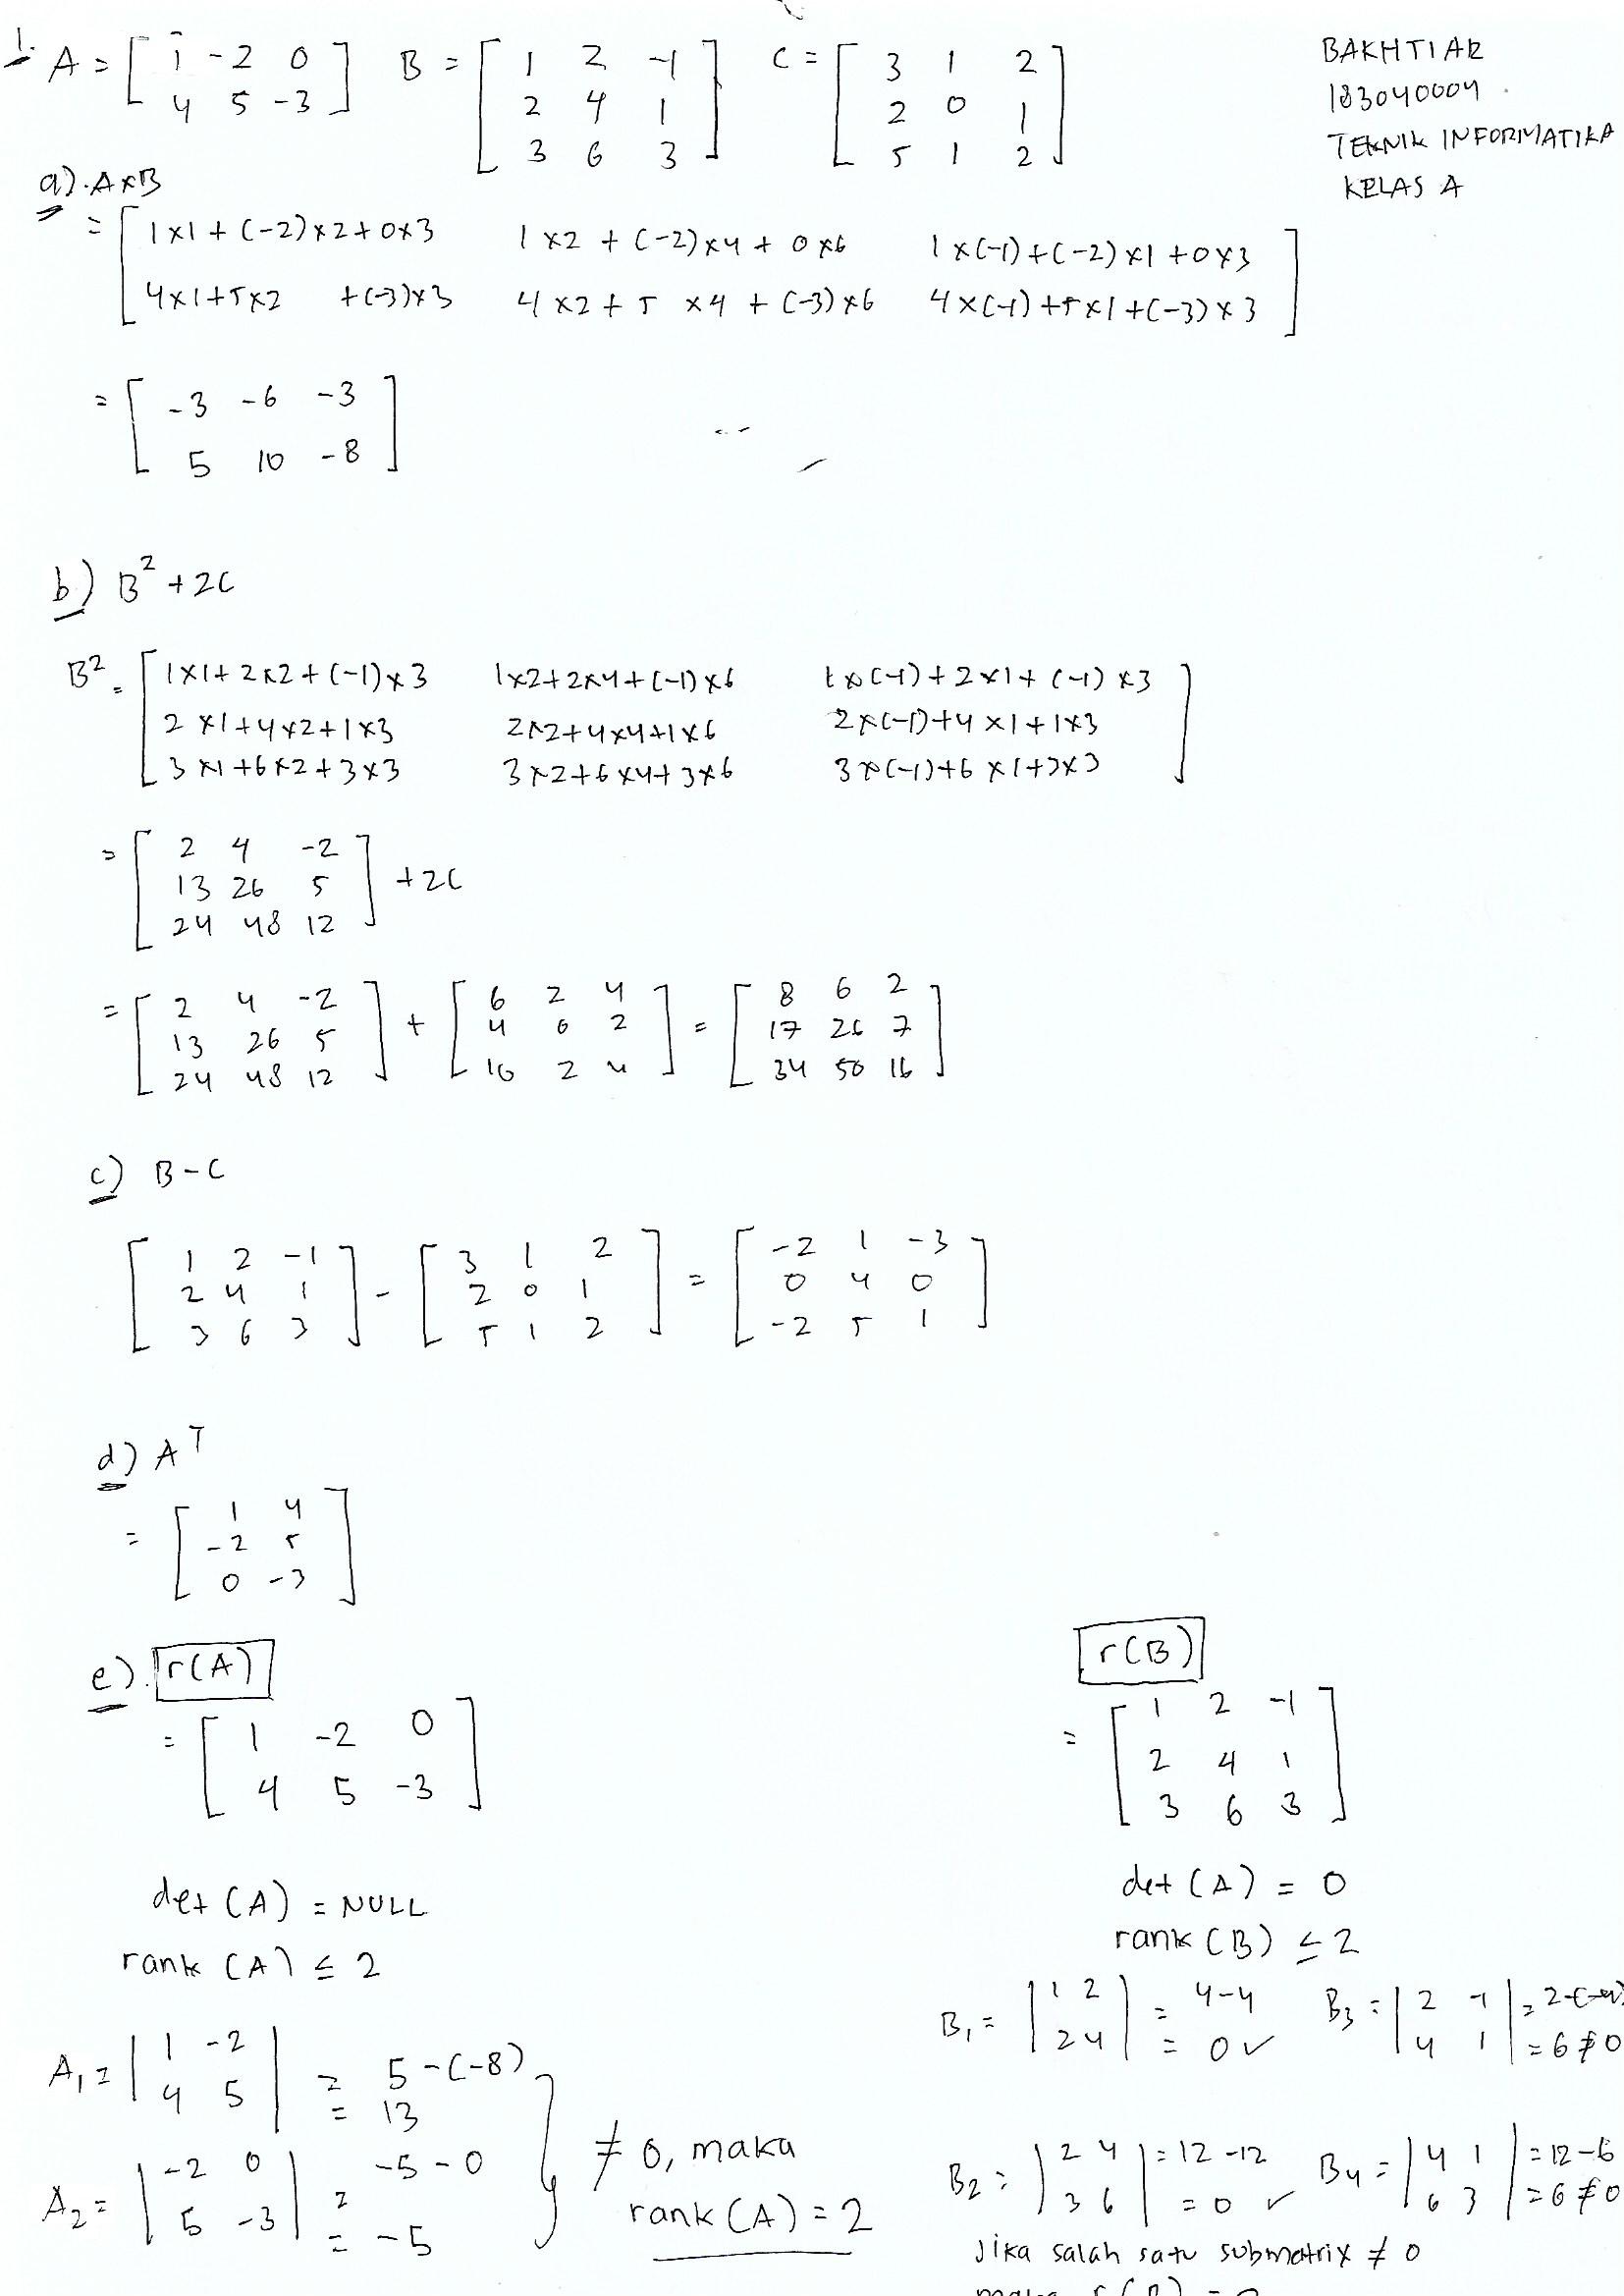 1. A = [ 1 -2 0 ] B = [ 1 2 -1 ] C = [ 3 1 2 ]
4 5 -3 2 4 1 2 0 1
3 6 3 5 1 2
BAKHTIAR
183040004
TEKNIK INFORMATIKA
KELAS A
a). A×B
= [ 1×1+(-2)×2+0×3 1×2+(-2)×4+0×6 1×(-1)+(-2)×1+0×3 ]
4×1+5×2+(-3)×3 4×2+5×4+(-3)×6 4×(-1)+5×1+(-3)×3
= [ -3 -6 -3 ]
5 10 -8
b) B² + 2C
B² = [ 1×1+2×2+(-1)×3 1×2+2×4+(-1)×6 1×(-1)+2×1+(-1)×3 ]
2×1+4×2+1×3 2×2+4×4+1×6 2×(-1)+4×1+1×3
3×1+6×2+3×3 3×2+6×4+3×6 3×(-1)+6×1+3×3
= [ 2 4 -2 ] + 2C
13 26 5
24 48 12
= [ 2 4 -2 ] + [ 6 2 4 ] = [ 8 6 2 ]
13 26 5 4 0 2 17 26 7
24 48 12 10 2 4 34 50 16
c) B - C
[ 1 2 -1 ] - [ 3 1 2 ] = [ -2 1 -3 ]
2 4 1 2 0 1 0 4 0
3 6 3 5 1 2 -2 5 1
d) Aᵀ
= [ 1 4 ]
-2 5
0 -3
e). r(A)
= [ 1 -2 0 ]
4 5 -3
det (A) = NULL
rank (A) ≤ 2
A₁ = | 1 -2 | = 5-(-8)
4 5 = 13
A₂ = | -2 0 | = -5 - 0
5 -3 = -5
≠ 0, maka
rank (A) = 2
r(B)
= [ 1 2 -1 ]
2 4 1
3 6 3
det (A) = 0
rank (B) ≤ 2
B₁ = | 1 2 | = 4-4 B₃ = | 2 -1 | = 2-(-4)
2 4 = 0 ✓ 4 1 = 6 ≠ 0
B₂ = | 2 4 | = 12-12 B₄ = | 4 1 | = 12-6
3 6 = 0 ✓ 6 3 = 6 ≠ 0
Jika salah satu submatrix ≠ 0